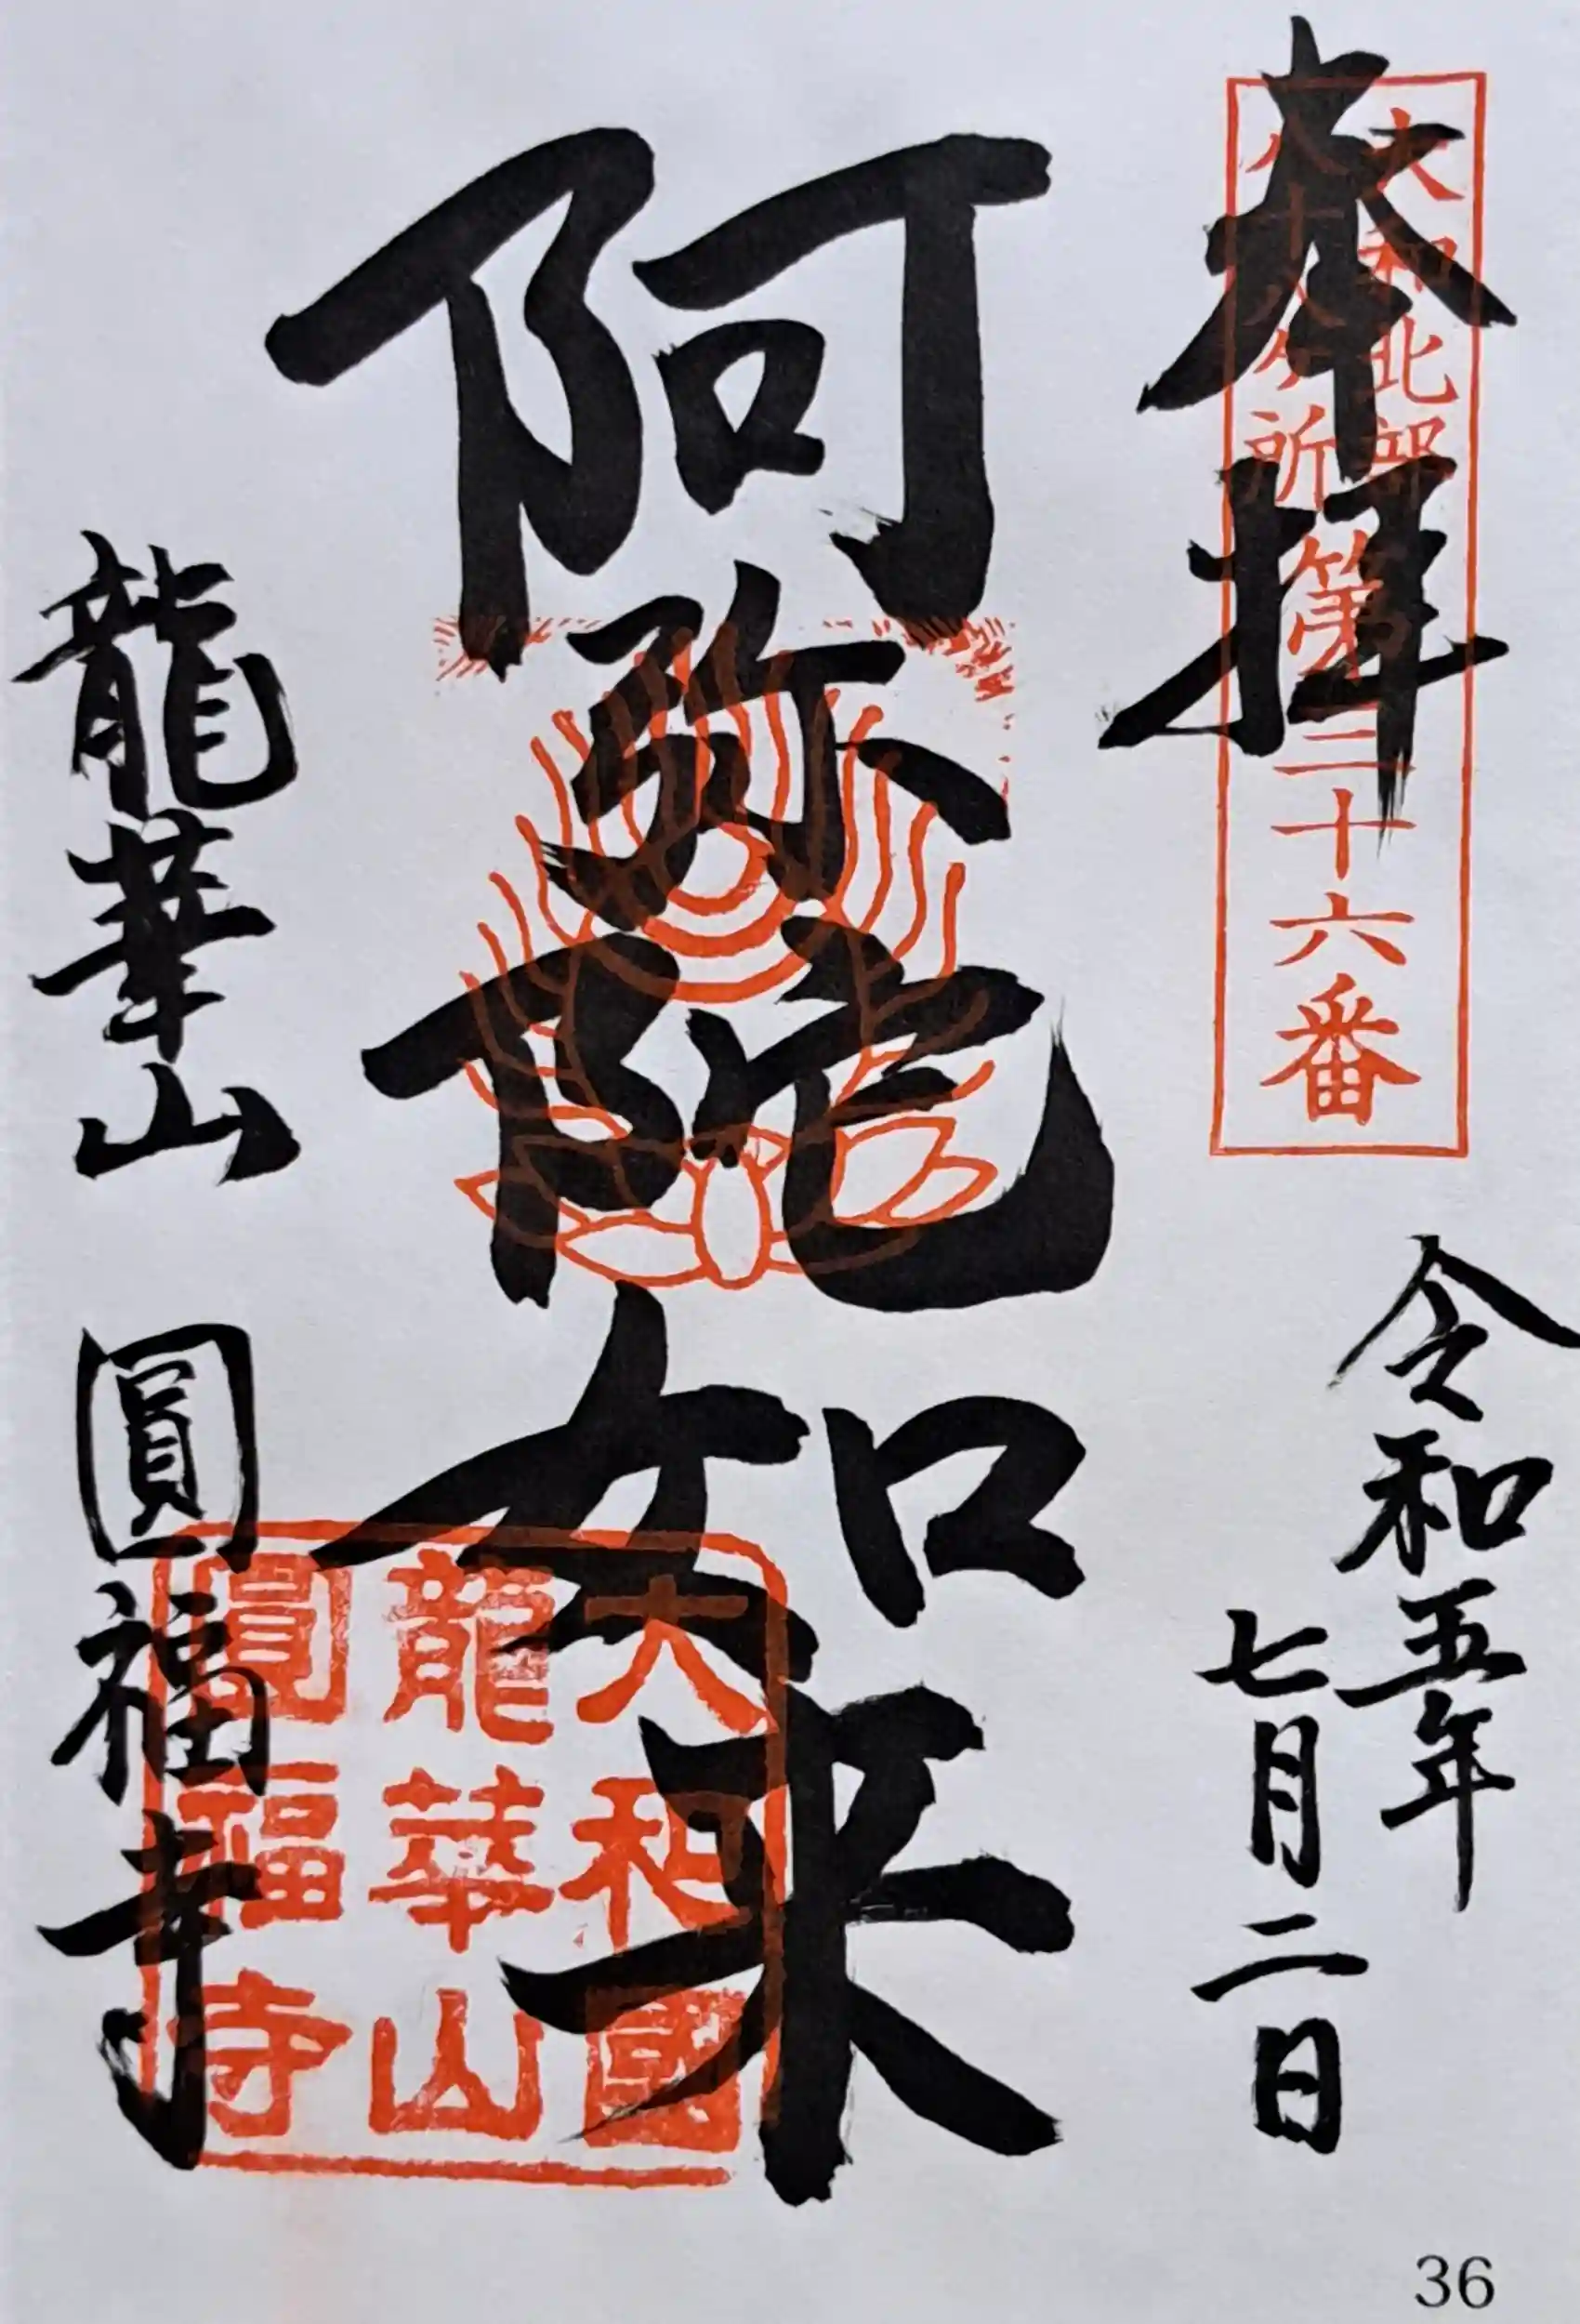 奉拝
大和北部
八十八ヶ所
第三十六番
令和五年
七月二日
阿弥陀如来
龍華山 圓福寺
大和國
龍華山
圓福寺
36